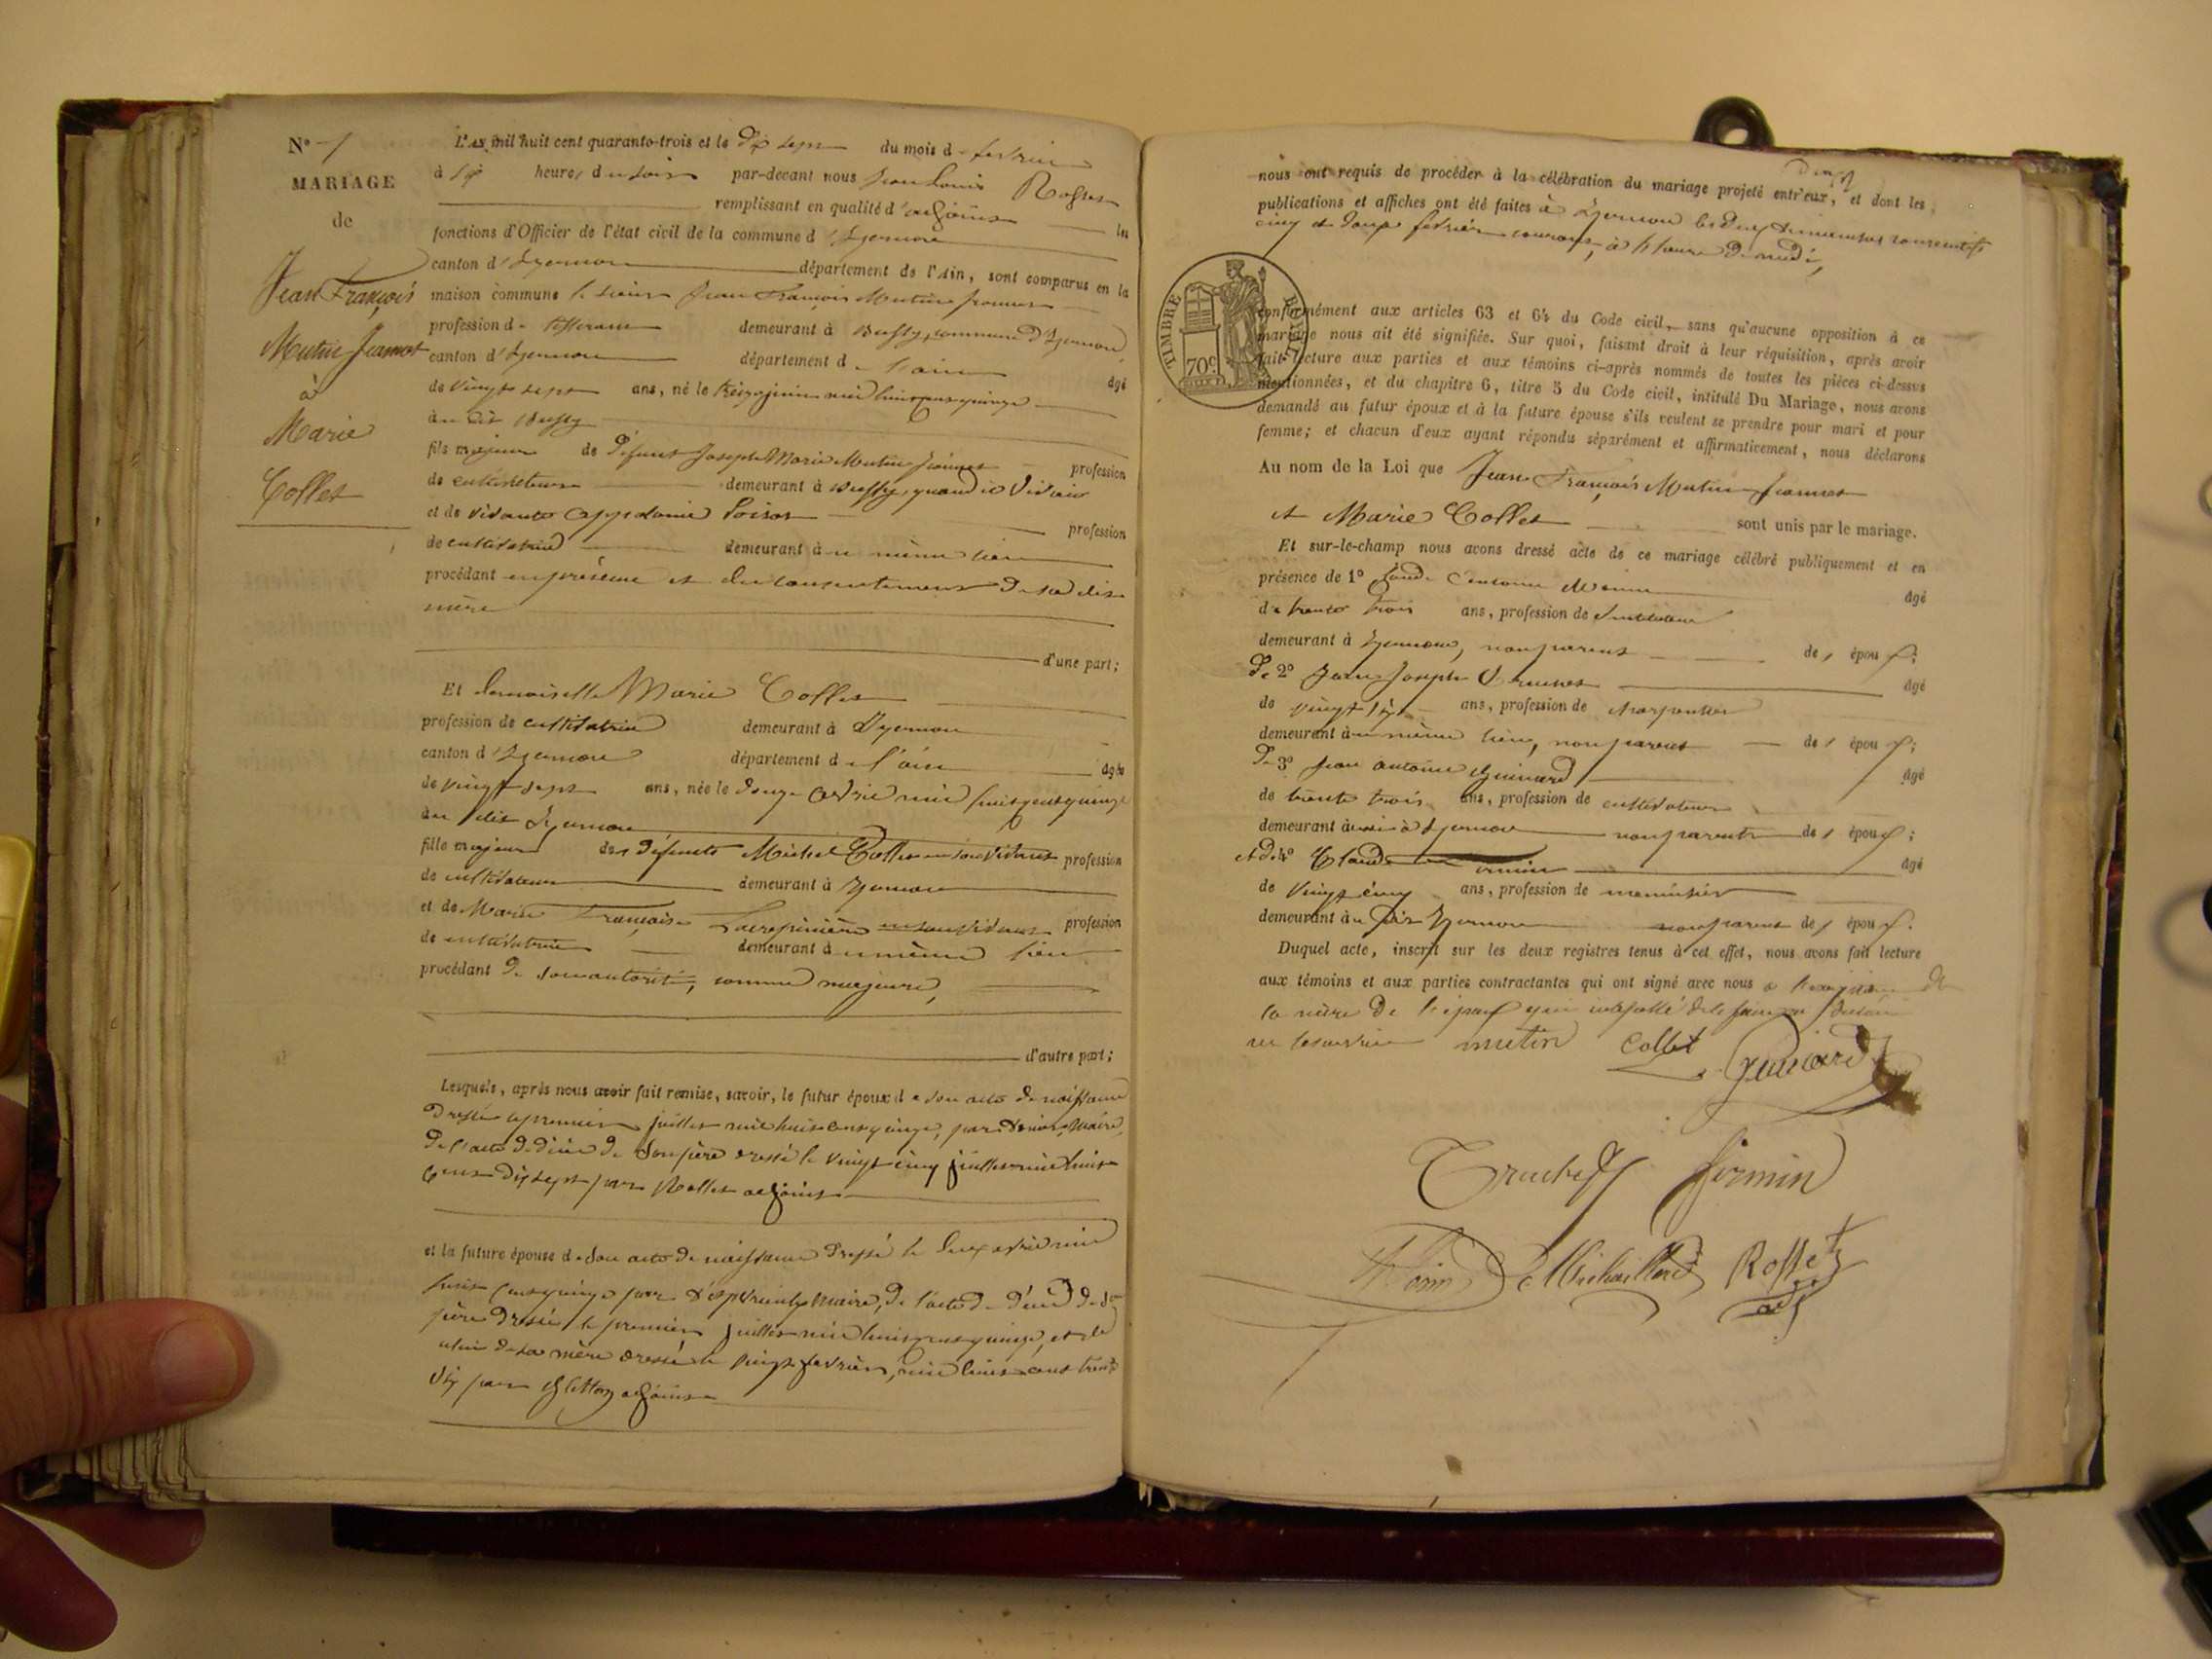 N° 1
MARIAGE
de
Jean François
Mutin Jeannet
à
Marie
Collet
L'AN mil huit cent quarante-trois et le dix sept du mois de février
à six heures du soir par-devant nous Jean Louis Rosset
remplissant en qualité d'adjoint les
fonctions d'Officier de l'état civil de la commune d'Izernore
canton d'Izernore département de l'Ain, sont comparus en la
maison commune le sieur Jean François Mutin Jeannet
profession de tisserand demeurant à Bussy, commune d'Izernore
canton d'Izernore département de l'ain
âgé
de vingt sept ans, né le treize juin mil huit cent quinze
au dit Bussy
fils majeur de défunt Joseph Marie Mutin Jeannet profession
de cultivateur demeurant à Bussy, quand il vivait
et de vivante Appolonie profession
de cultivatrice demeurant au même lieu
procédant en présence et du consentement de sa dite
mère
d'une part;
Et demoiselle Marie Collet
profession de cultivatrice demeurant à Izernore
canton d'Izernore département de l'ain âgée
de vingt sept ans, née le douze avril mil huit cent quinze
au dit Izernore
fille majeure des défunts Michel Collet en son vivant profession
de cultivateur demeurant à Izernore
et de Marie Françoise en son vivant profession
de cultivatrice demeurant au même lieu
procédant de son autorité, comme majeure,
d'autre part;
Lesquels, après nous avoir fait remise, savoir, le futur époux de son acte de naissance
dressé le premier juillet mil huit cent quinze, par maire,
de l'acte de décès de son père dressé le vingt cinq juillet mil huit
cent dix sept par adjoint
et la future épouse de son acte de naissance dressé le avril mil
huit cent quinze par maire, de l'acte de décès de son
père dressé le premier juillet mil huit cent quinze, et de
celui de sa mère dressé le vingt février, mil huit cent trente
six par adjoint
nous ont requis de procéder à la célébration du mariage projeté entr'eux, et dont les deux
publications et affiches ont été faites à Izernore les deux dimanches consécutifs
cinq et douze février courant, à l'heure de midi,
TIMBRE ROYAL
70c
conformément aux articles 63 et 64 du Code civil, sans qu'aucune opposition à ce
mariage nous ait été signifiée. Sur quoi, faisant droit à leur réquisition, après avoir
fait lecture aux parties et aux témoins ci-après nommés de toutes les pièces ci-dessus
mentionnées, et du chapitre 6, titre 5 du Code civil, intitulé Du Mariage, nous avons
demandé au futur époux et à la future épouse s'ils veulent se prendre pour mari et pour
femme; et chacun d'eux ayant répondu séparément et affirmativement, nous déclarons
Au nom de la Loi que Jean François Mutin Jeannet
et Marie Collet sont unis par le mariage.
Et sur-le-champ nous avons dressé acte de ce mariage célébré publiquement et en
présence de 1° Claude âgé
de trente trois ans, profession de instituteur
demeurant à Izernore, non parent des époux;
De 2° Jean Joseph âgé
de vingt six ans, profession de charpentier
demeurant au même lieu, non parent des époux;
De 3° Jean Antoine Guinard âgé
de trente trois ans, profession de cultivateur
demeurant aussi à Izernore non parent des époux;
et de 4° Claude âgé
de vingt cinq ans, profession de menuisier
demeurant au dit Izernore non parent des époux.
Duquel acte, inscrit sur les deux registres tenus à cet effet, nous avons fait lecture
aux témoins et aux parties contractantes qui ont signé avec nous à l'exception de
la mère de l'époux qui
mutin Collet Guinard
Truchet firmin
Rosset
adj